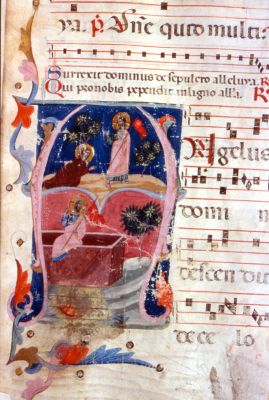 ya. P. Nunc quid multi
Surrexit dominus de sepulcro alleluya.
Qui pro nobis pependit in ligno alla.
Angelus
domi
descendit
de ce lo